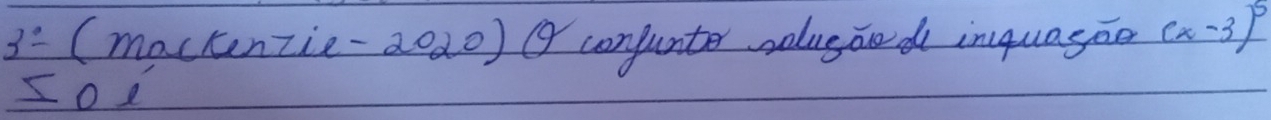 3º- (mackenzie-2020) O conjunto solução de inequação (x-3)⁵
≤ 0 é